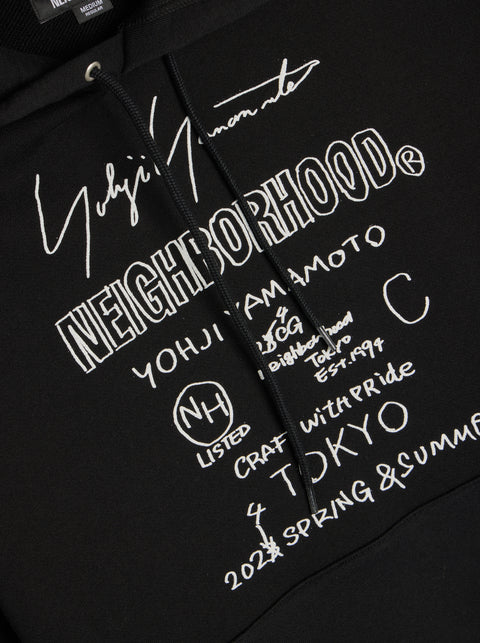 MEDIUM
REGULAR
Yohji Yamamoto
NEIGHBORHOOD®
YOHJI YAMAMOTO
C
4
CG
Neighborhood
TOKYO
EST.1994
NH
LISTED
CRAFT with PRIDE
TOKYO
4
SPRING & SUMME